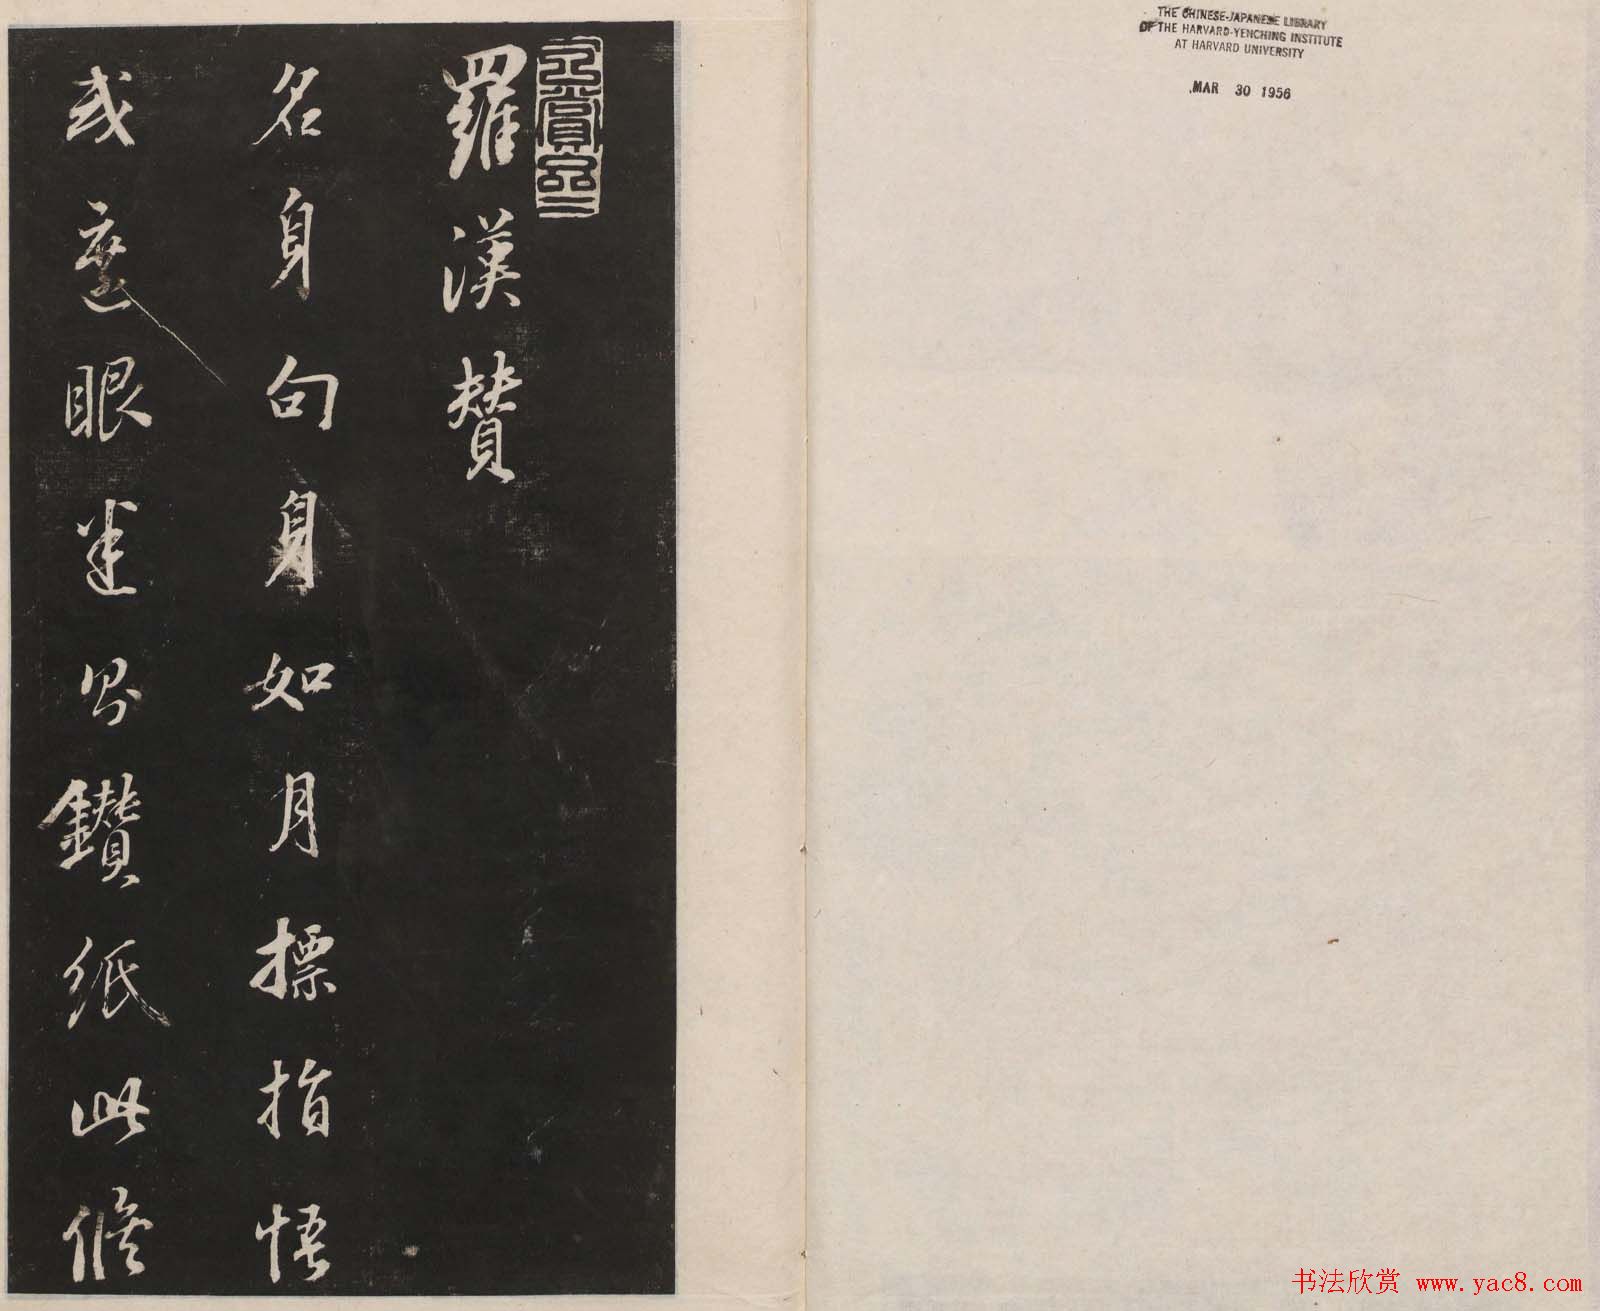 THE CHINESE-JAPANESE LIBRARY
OF THE HARVARD-YENCHING INSTITUTE
AT HARVARD UNIVERSITY
MAR 30 1956
羅漢贊
名身句身如月標指悟
或遮眼迷鑽紙此脩
书法欣赏 www.yac8.com